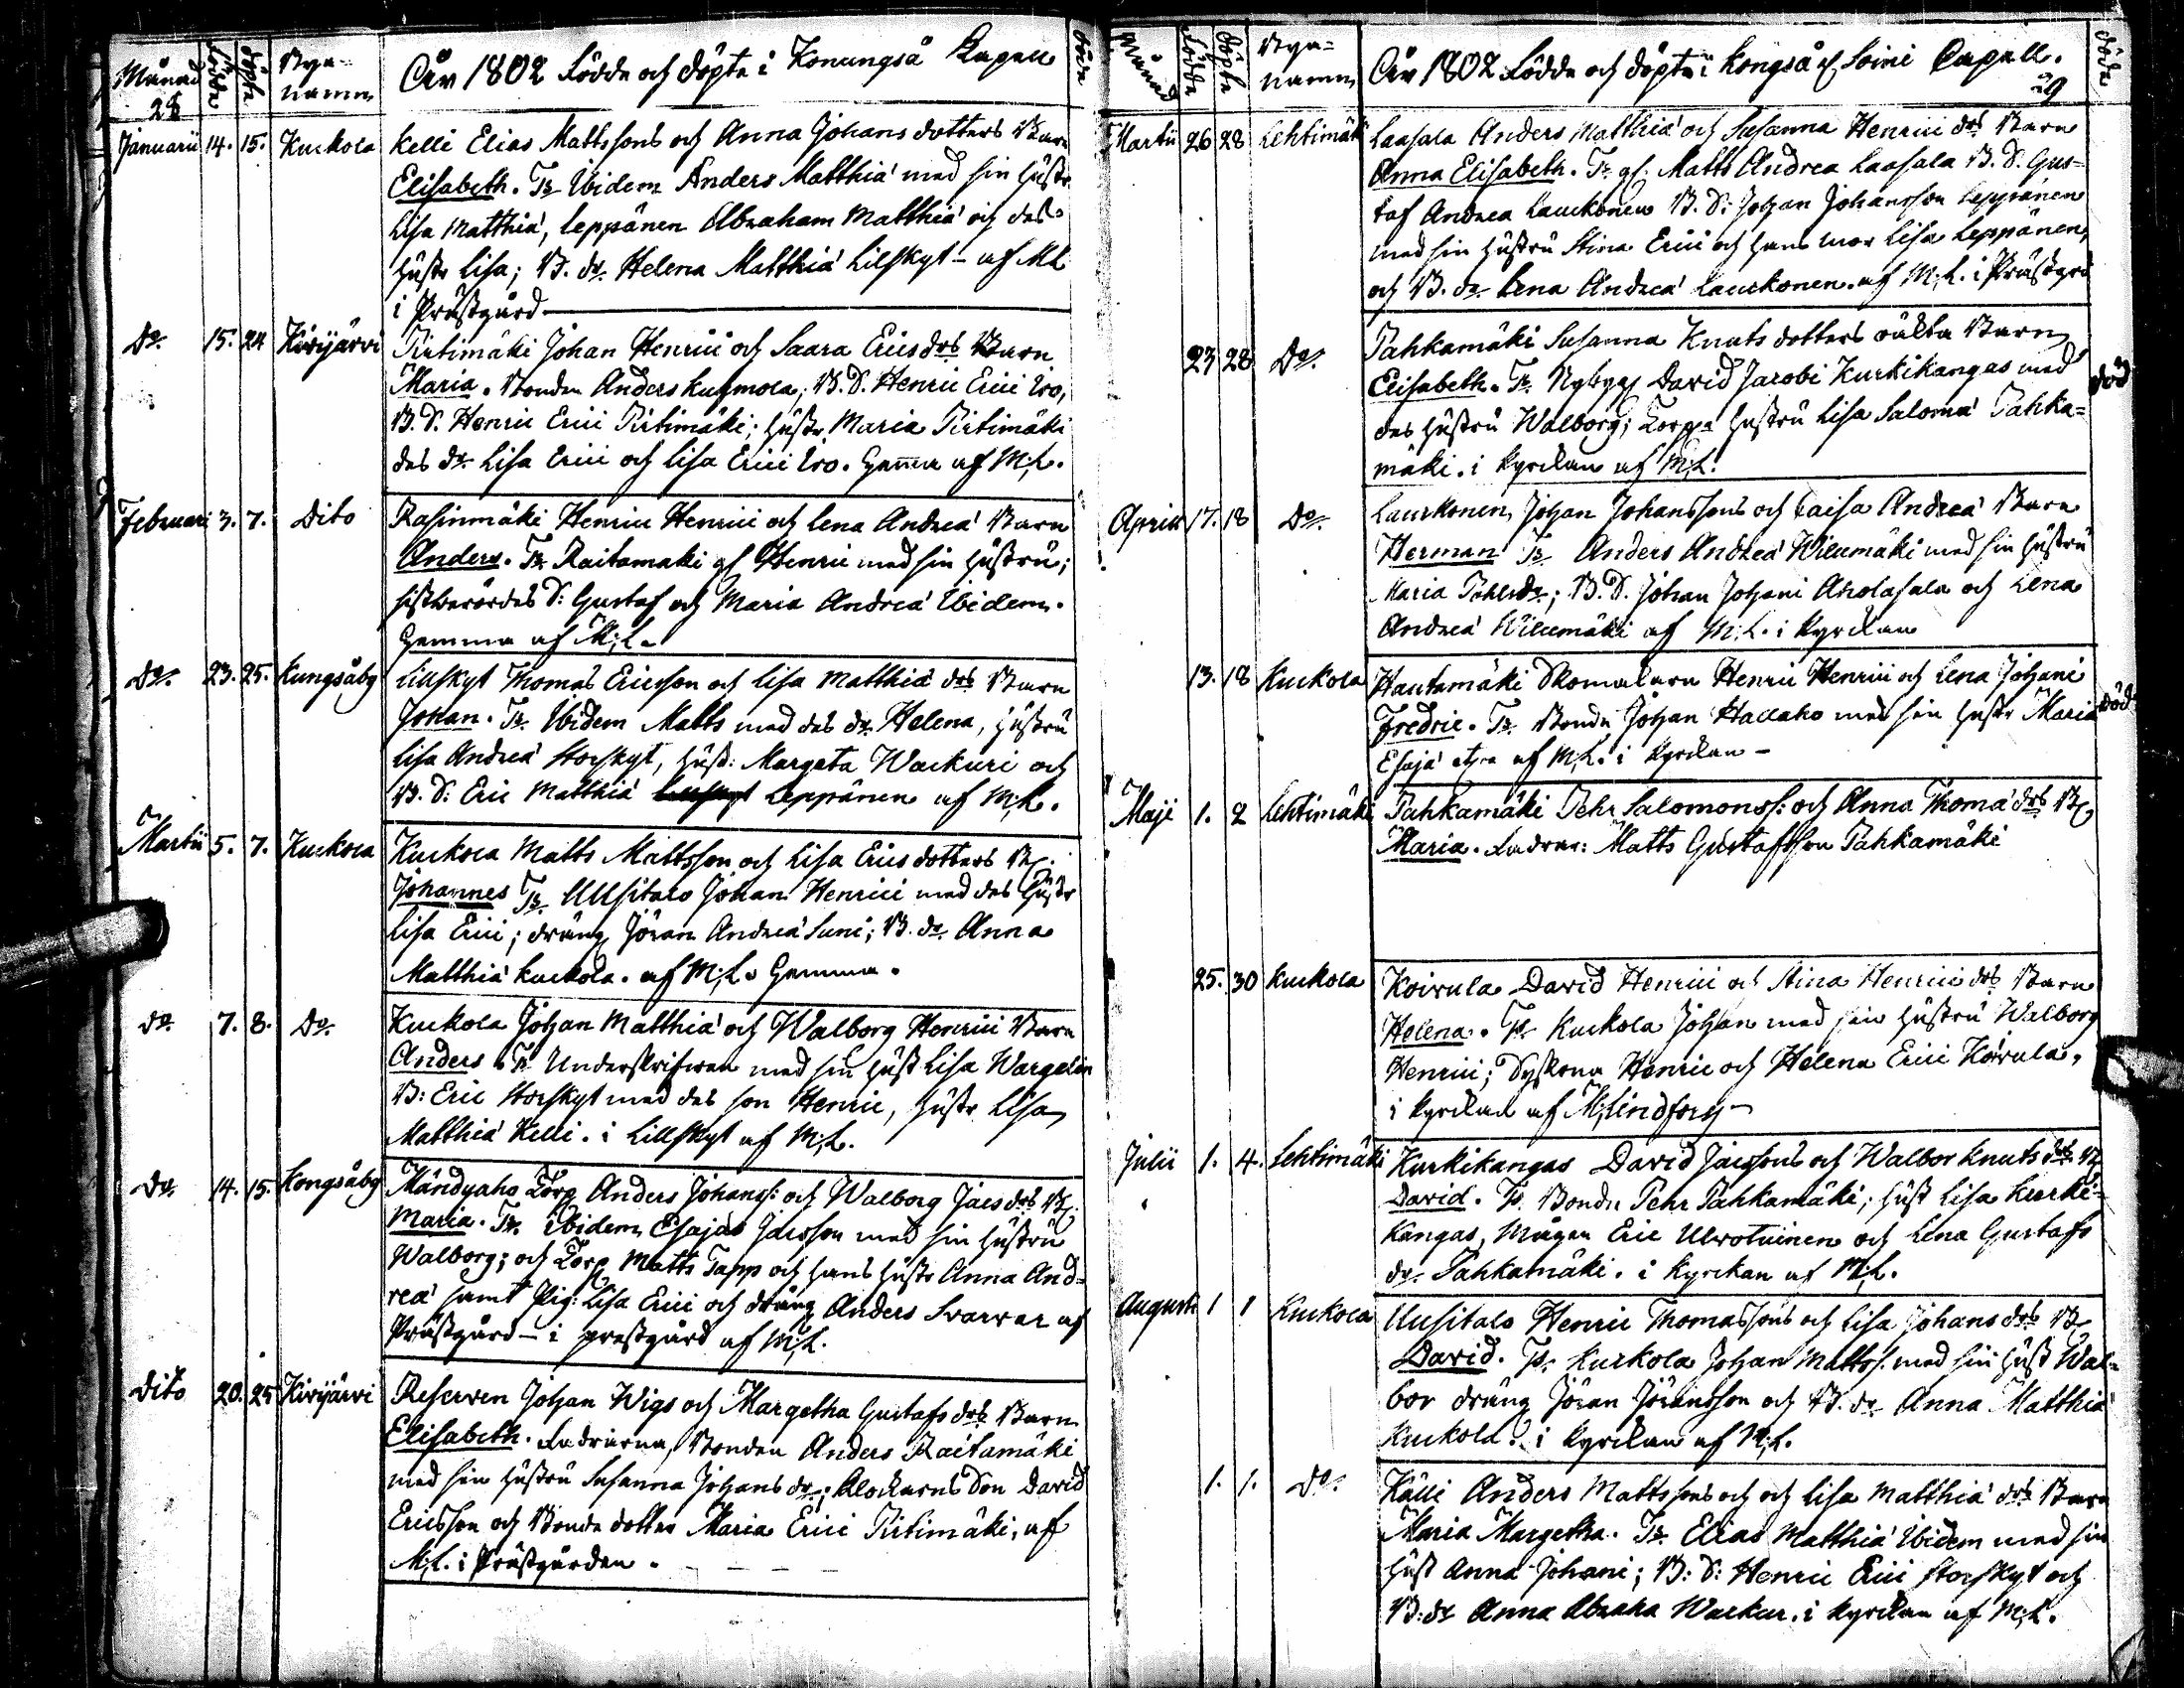 Månad Födde döpte Byanamn
28
Åhr 1802 Födde och döpte i Konungså Capell
döde
Januarii 14. 15. Kuckola
Kelli Elias Mattssons och Anna Johans dotters Barn
Elisabeth. Tr. Ibidem Anders Matthiæ med sin Hustr
Lisa Matthiæ, Leppänen Abraham Matthiæ och des
Hustr Lisa; B. dr. Helena Matthiæ Lillskyt – af ML
i Prästgård
Do. 15. 24 Kivijärvi
Pirtimäki Johan Henrici och Saara Erics drs Barn
Maria. Bonden Anders Kuhmola; B. S. Henric Erici Ivo,
B. S. Henric Erici Pirtimäki; Hustr. Maria Pirtimäki
des dr. Lisa Erici och Lisa Erici Ivo. Hemma af M:L.
Februari 3. 7. Dito
Rasinmäki Henric Henrici och Lena Andreæ Barn
Anders. Tr. Raitamaki Henric med sin Hustru;
S: Gustaf och Maria Andreæ Ibidem.
Hemma af M:L.
Do. 23. 25. Kungsåby
Lillskyt Thomas Ericsson och Lisa Matthiæ drs Barn
Johan. Tr. Ibidem Matts med des dr. Helena, Hustru
Lisa Andreæ Storskyt, Hust: Margeta Warkuri och
B. S: Eric Matthiæ Leppänen af M:L.
Martii 5. 7. Kuckola
Kuckola Matts Mattsson och Lisa Erics dotters B.
Johannes Tr. Uusitalo Johan Henrici med des Hustr
Lisa Erici; dräng Jöran Andreæ Suni; B. dr. Anna
Matthiæ Kuckola. af M:L. Hemma.
do. 7. 8. Do.
Kuckola Johan Matthiæ och Walborg Henrici Barn
Anders Tr. Underskrifvaren med sin Hust Lisa Wargelin
B: Eric Storskyt med des son Henric, Hustr Lisa
Matthiæ Kelli. i Lillskyt af M:L.
Do. 14. 15. Kongsåby
Mändyaho Torp Anders Johanss: och Walborg Jacs drs B.
Maria. Tr. Ibidem Esajas Jacsson med sin Hustru
Walborg; och Torp Matts Tapp och hans Hustr Anna And=
reæ samt Pig: Lisa Erici och dräng Anders Svarvar af
Prästgård – i prestgård af M:L.
Dito 20. 25 Kivijärvi
Reserven Johan Wigs och Margetha Gustafs drs Barn
Elisabeth. Faddrarna, Bonden Anders Raitamäki
med sin Hustru Susanna Johans dr.; Klockarns Son David
Ericsson och Bonde dotter Maria Erici Pirtimäki, af
M:L. i Prästgården.
Månad Födde Döpte Byanamn
Åhr 1802 Födde och döpte i Kongså och Soini Capell.
29
döde
Martii 26 28 Lehtimäki
Laasala Anders Matthiæ och Susanna Henrici drs Barn
Anna Elisabeth. Tr. Matts Andreæ Laasala B. S. Gus=
taf Andreæ Laurkonen B. S: Johan Johansson Leppänen
med sin Hustru Stina Erici och hans mor Lisa Leppänen,
och B. dr. Lena Andreæ Laurkonen. af M:L. i Prästgrd
23 28 Do.
Pahkamäki Susanna Knuts dotters oäkta Barn
Elisabeth. Tr. Nybygg David Jacobi Kurkikangas med
des Hustru Walborg; Torpa Hustru Lisa Saloma Pahka=
mäki. i kyrckan af M:L.
död
Aprill 17. 18 Do.
Laurkonen, Johan Johanssons och Caisa Andreæ Barn
Herman Tr. Anders Andreæ Wilumäki med sin Hustru
Maria Pehlsdr; B. S. Johan Johani Aholasala och Lena
Andreæ Wilumäki af M:L. i kyrckan
13. 18 Kuckola
Hautamäki Skomakaren Henric Henrici och Lena Johani
Fredric. Tr. Bonde Johan Hallaho med sin Hustr Maria
Esajæ af M:L. i kyrckan –
död
Maji 1. 2 Lehtimäki
Pahkamäki Pehr Salomonss: och Anna Thomæ drs B.
Maria. Faddrar: Matts Gustafsson Pahkamäki
25. 30 Kuckola
Koivula David Henrici och Stina Henrici drs Barn
Helena. Tr. Kuckola Johan med sin Hustru Walborg
Henrici; Syskona Henric och Helena Erici Koivula,
i kyrckan af M:Lindfors –
Julii 1. 4. Lehtimäki
Kurkikangas David Jacssons och Walbor Knuts drs B.
David. Tr. Bonde Pehr Pahkamäki; Hust Lisa Kurki=
kangas, Mågen Eric Ulvotuinen och Lena Gustafs
dr. Pahkamäki. i kyrckan af M:L.
Augusti 1 1 Kuckola
Uusitalo Henric Thomassons och Lisa Johans drs B.
David. Tr. Kuckola Johan Mattss. med sin Hust Wal=
bor dräng Jöran Jöransson och B. dr. Anna Matthiæ
Kuckola. i kyrckan af M:L.
1. 1. Do.
Källi Anders Mattssons och och Lisa Matthiæ drs Barn
Maria Margetha. Tr. Elias Matthiæ Ibidem med sin
Hust Anna Johani; B: S: Henric Erici Storskyt och
B: dr Anna Abraha Warkur. i kyrckan af M:L.